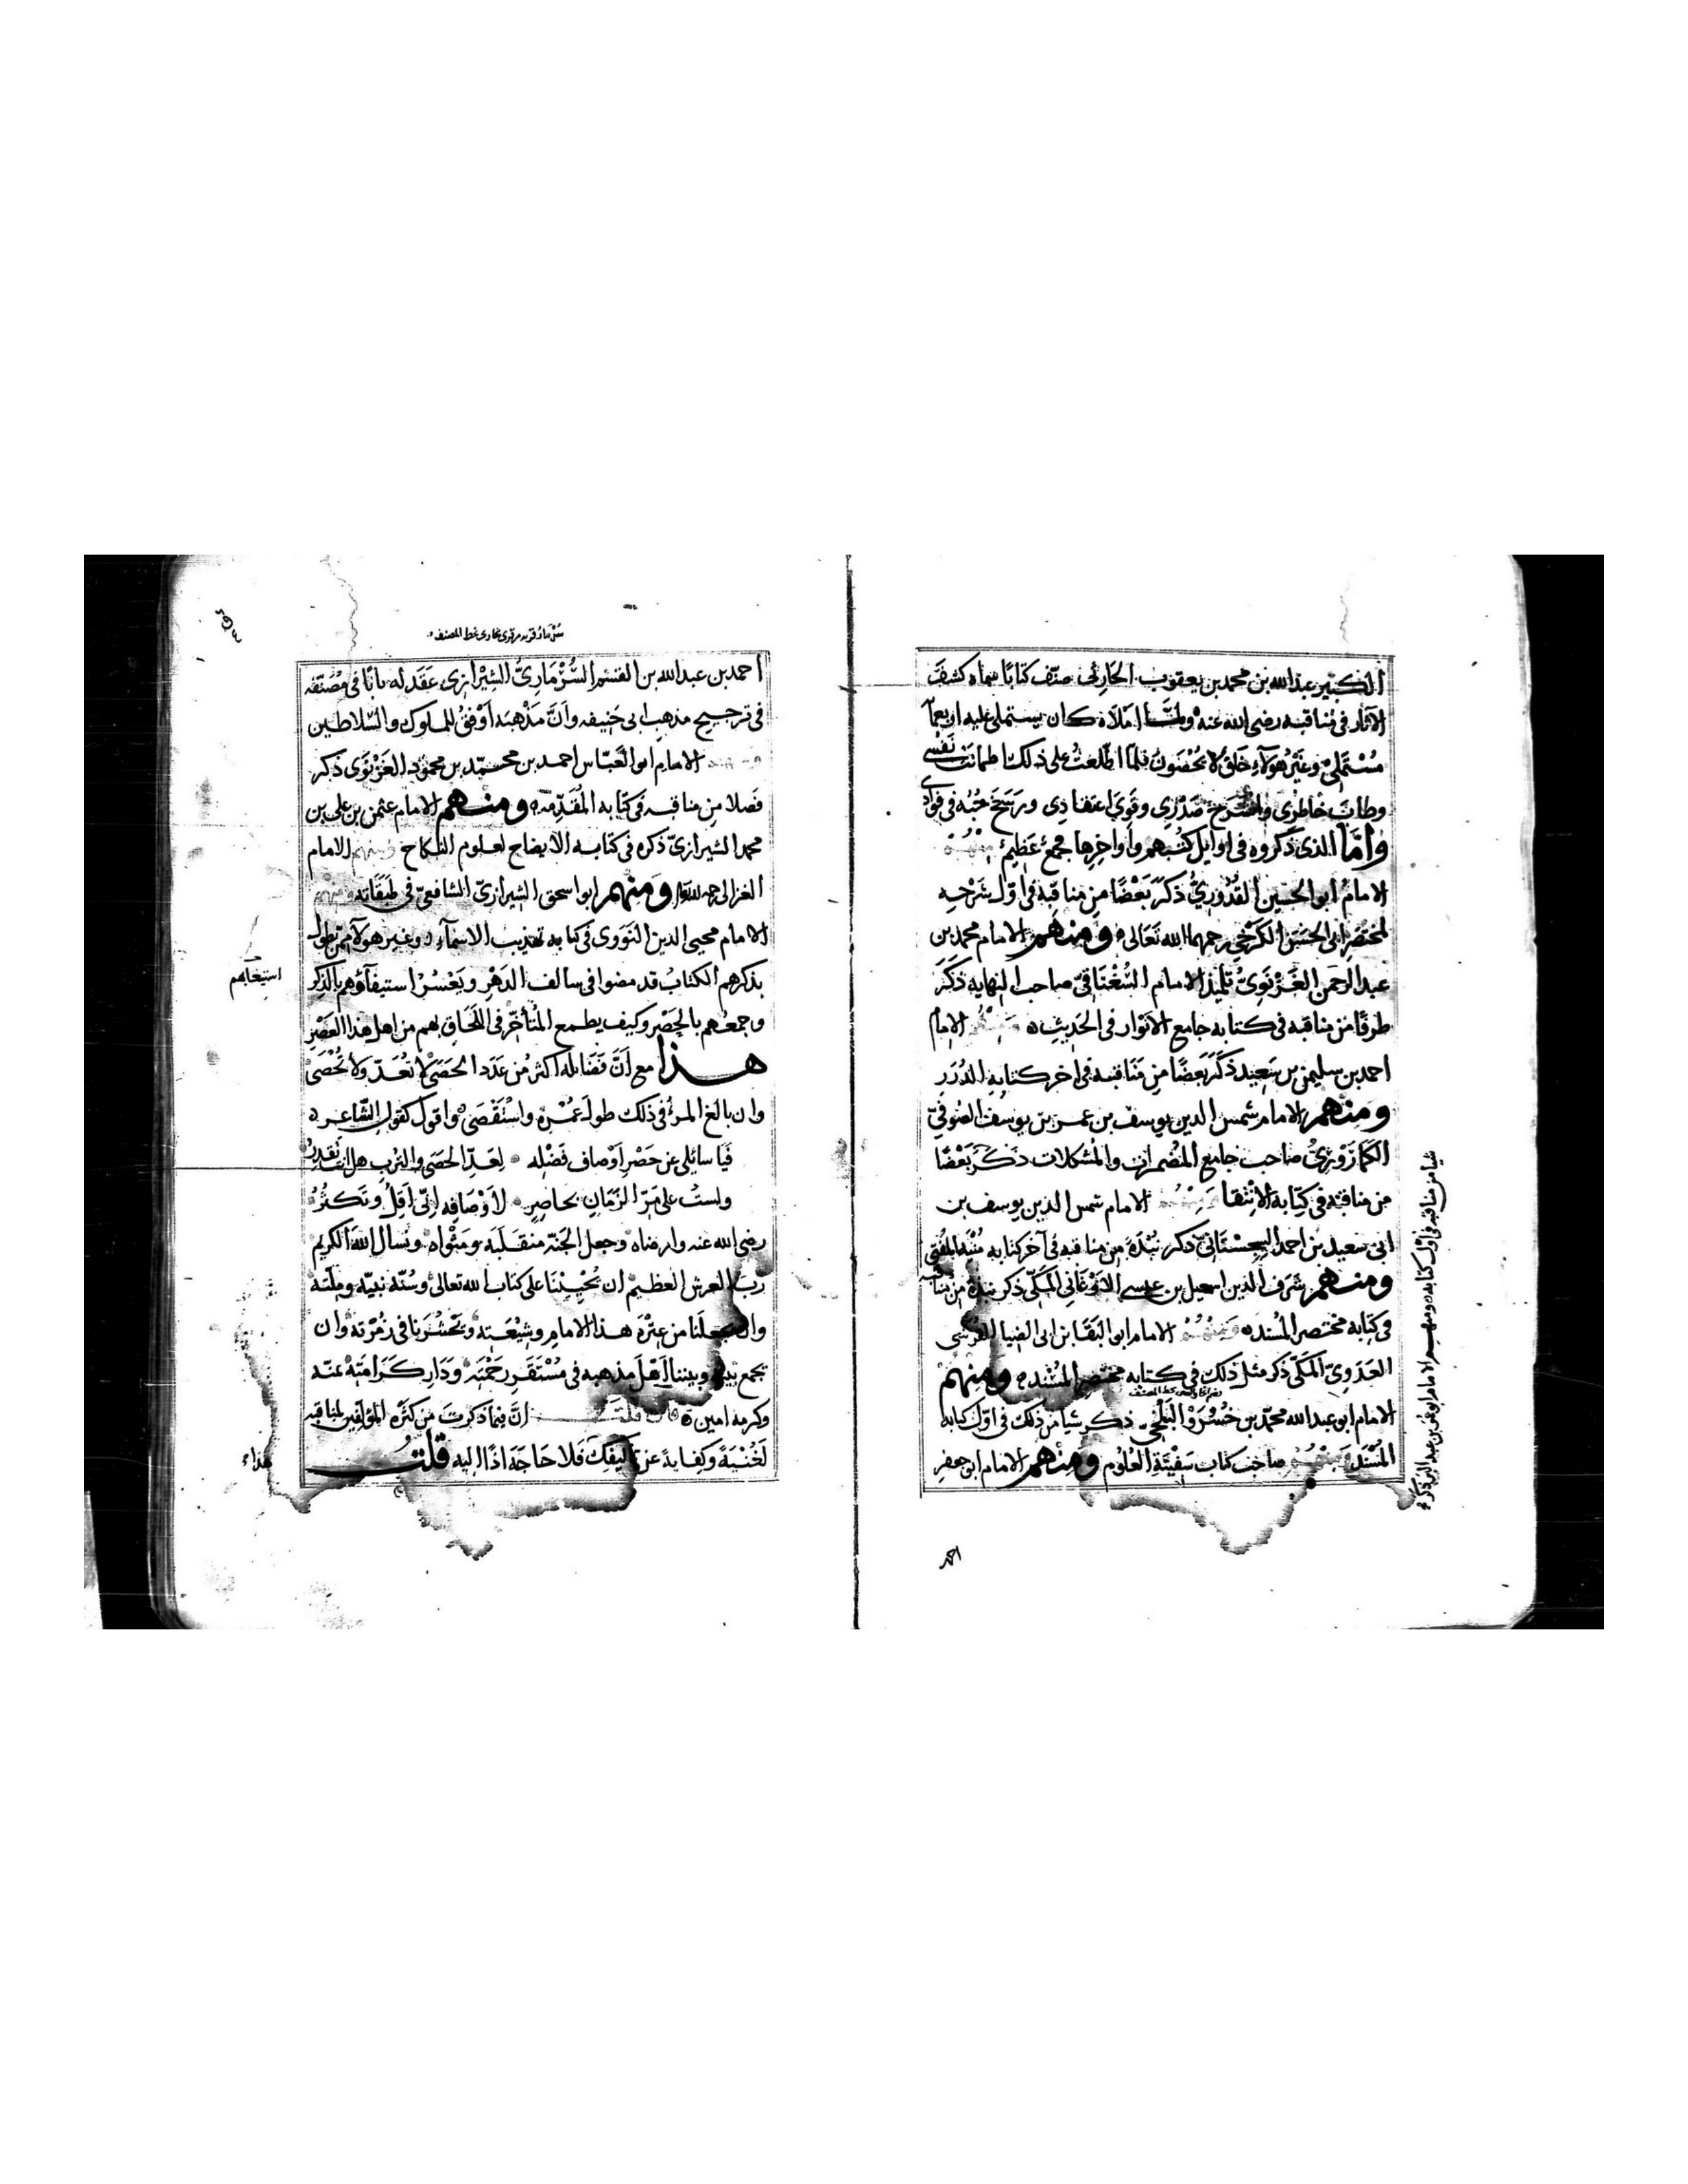 الكبير عبد الله بن محمد بن يعقوب الحارثي صنّف كتابًا سماه كشف
الآثار في مناقبه رضي الله عنه ولمّا املاه كان يستملي عليه اربعمآ
مُسْتَمْلي وغيرُ هؤلآءِ خَلقٌ لا يُحْصَونُ فلمّا اطّلعتُ على ذلك اطمانتْ نَفْسي
وطابَ خاطري وانشرح صَدْري وقوي اعتقادي ورسَخَ حُبُه في فؤادي
وأمّا الذي ذكروه في اوايل كتبهم وأواخرها جمعٌ عظيمٌ منهُم
الامامُ ابو الحسين القُدُوريُّ ذكر بَعْضًا من مناقبه في اوّل شرحِه
لمختصر ابي الحسَن الكرخي رحمهما الله تعالى ومنهم الامام محمد بن
عبد الرحمن الغزنويُّ تلميذ الامام السُّغْنَاقيّ صاحب النهايه ذكرَ
طرفًا من مناقبه في كتابه جامع الانوار في الحديث ومنهُم الامام
احمد بن سليمن بن سَعيد ذكَر بَعضًا مِن مَناقبه في آخر كتابه الدُرَر
ومنهم الامام شمس الدين يوسف بن عمر بن يوسف الصُوفيّ
الكمازَوريُّ صاحب جامع المُضمرات والمُشكلات ذكَر بَعْضًا
من مناقبه في كتابه الانتقا ومنهُم الامام شمس الدين يوسف بن
ابي سعيد بن احمد السِجِسْتَانيّ ذكر نُبْذَةً من مناقبه في آخر كتابه مُنْيَة المُفتي
ومنهم شرَف الدين اسمعيل بن عيسى الاَوْغَاني المكيّ ذكر نبذة من مناقبه
في كتابه مختصر المُسْنده ومنهُم الامام ابو البقا بن ابي الضيا القرشي
العَدَوِيّ المكيّ ذكر مثل ذلك في كتابه مختصر المُسْنده ومنهم
الامام ابو عبد الله محمّد بن خُسْرَوْ البَلْخيّ ذكر شيا من ذلك في اوّل كتابه
المُسْنَد ومنهُم صاحب كتاب سَفينَةِ العُلُوم ومنهم الامام ابو جعفر
شيا من مناقبه في اول كتابه ومنهم الامام ابو عمر بن عبد البر ذكر
احمد
احمد بن عبد الله بن القسم السُّرْمَارِيُّ الشِيْرازى عَقَد له بابًا في مُصَنّفه
في ترجيح مذهب ابى حَنيفه وانَّ مَذْهبَه اَوْفَقُ للملوك والسّلاطين
ومنهم الامام ابو العَبّاس احمد بن محمّد بن محمود الغَزْنَوى ذكر
فصلا من مناقبه في كتابه المُقَدّمه ومنهم الامام عثمن بن علي بن
محمد الشيرازيّ ذكره في كتابه الايضاح لعلوم النكاح ومنهم الامام
الغزالي رحمه الله ومنهم ابو اسحق الشيرازيّ الشافعيّ في طبَقَاته ومنهم
الامام محيي الدين النَوَوى في كتابه تهذيب الاسمآءِ وغير هولآء ممّن يطول
بذكرهم الكتابُ قد مضوا في سالف الدهْر ويَعْسُرُ استيفآؤهم بالذِكر
استيعابهم
وجمعُهم بالحَصْر وكيف يطمع المُتأخّر في اللّحَاق بهم من اهل هذا العَصْرِ
هذا مع اَنَّ فَضَائله اكثرُ مُن عَدَد الحَصَى لا تُعَدّ ولا تُحْصَى
وان بالغ المرءُ في ذلك طولَ عُمْره واسْتَقْصَى واقول كقول الشّاعر
فَيَا سائلى عن حَصْر اَوْصاف فَضْله لِعَدّ الحصَى والتربِ هل انتَ تقدرُ
ولستُ على مَرّ الزمَانِ بحاصِرٍ لاَوْصَافِه اِنّى اَقِلُّ وتَكثُرُ
رضي الله عنه وارضاه وجعل الجَنّة منقلَبَه ومثْواه ونسال اللّهَ الكريم
ربَّ العرش العظيم ان يُحْيِيْنَا على كتاب الله تعالى وسُنّة نبيّه ومِلّته
وان يجعلَنَا من عِتْرَة هذا الامام وشِيْعَته ويَحشُرَنا في زُمْرَته وان
يجمع بينه وبيننا اَهْلَ مَذهبه في مُسْتَقَرِ رَحْمَتِه ودَارِ كَرامَتِه عنّه
وكرمه امين قال قلتَ اِنَّ فيمَا ذكرتَ من كثرَة المؤلفين لمناقبه
لَغُنْيَةً وكِفايةً عن تاليفك فَلا حَاجَةَ اذًا اليه قلتُ
هذا